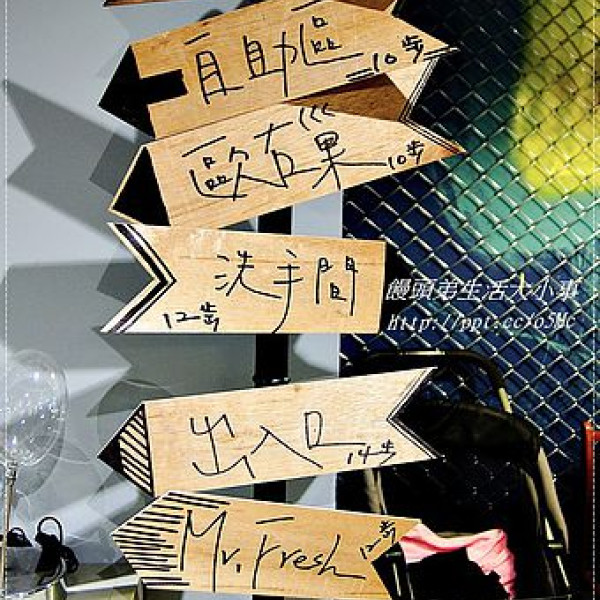 自助區
10步
歐右巢
10步
洗手間
12步
饅頭弟生活大小事
http://ppt.cc/o5Mc
出入口
14步
Mr. Fresh
12步